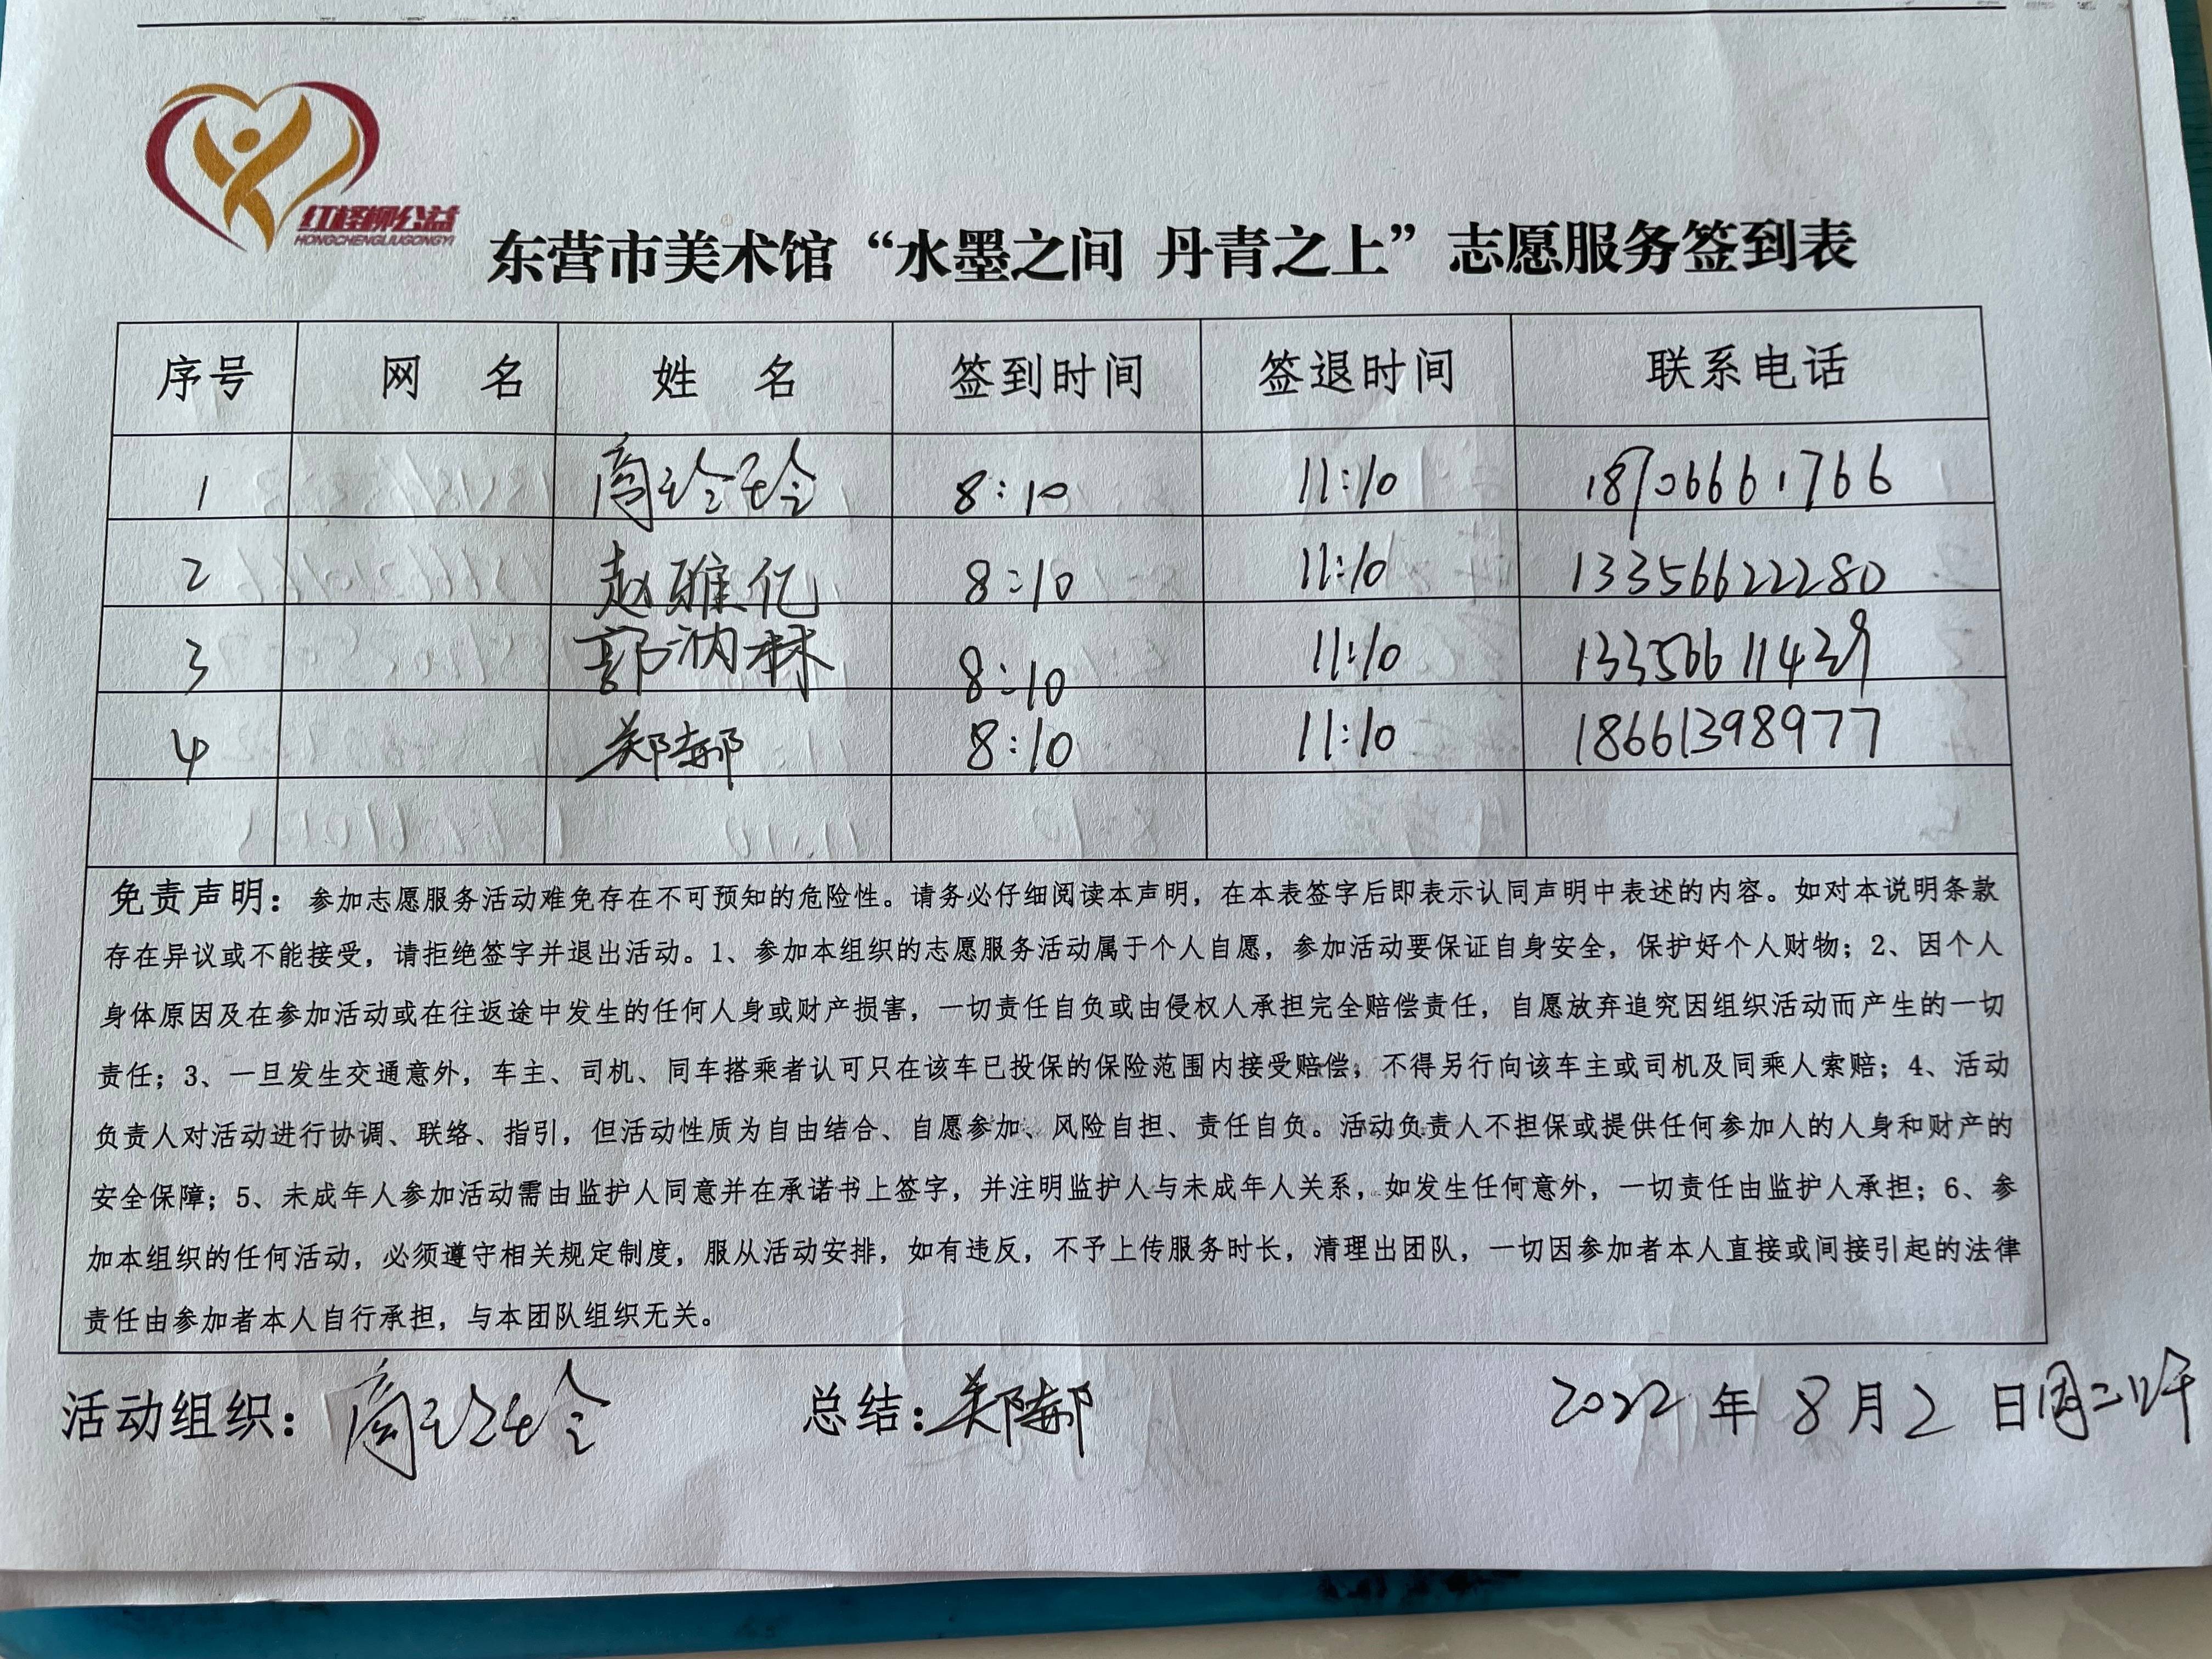 红柽柳公益
HONGCHENGLIUGONGYI
东营市美术馆“水墨之间 丹青之上”志愿服务签到表
序号 网 名 姓 名 签到时间 签退时间 联系电话
1 商玲玲 8:10 11:10 18706661766
2 赵雅亿 8:10 11:10 13356622280
3 郭 林 8:10 11:10 13356611439
4 郑郝 8:10 11:10 18661398977
免责声明：参加志愿服务活动难免存在不可预知的危险性。请务必仔细阅读本声明，在本表签字后即表示认同声明中表述的内容。如对本说明条款
存在异议或不能接受，请拒绝签字并退出活动。1、参加本组织的志愿服务活动属于个人自愿，参加活动要保证自身安全，保护好个人财物；2、因个人
身体原因及在参加活动或在往返途中发生的任何人身或财产损害，一切责任自负或由侵权人承担完全赔偿责任，自愿放弃追究因组织活动而产生的一切
责任；3、一旦发生交通意外，车主、司机、同车搭乘者认可只在该车已投保的保险范围内接受赔偿；不得另行向该车主或司机及同乘人索赔；4、活动
负责人对活动进行协调、联络、指引，但活动性质为自由结合、自愿参加、风险自担、责任自负。活动负责人不担保或提供任何参加人的人身和财产的
安全保障；5、未成年人参加活动需由监护人同意并在承诺书上签字，并注明监护人与未成年人关系，如发生任何意外，一切责任由监护人承担；6、参
加本组织的任何活动，必须遵守相关规定制度，服从活动安排，如有违反，不予上传服务时长，清理出团队，一切因参加者本人直接或间接引起的法律
责任由参加者本人自行承担，与本团队组织无关。
活动组织：商玲玲 总结：郑郝 2022 年 8 月 2 日 周二上午